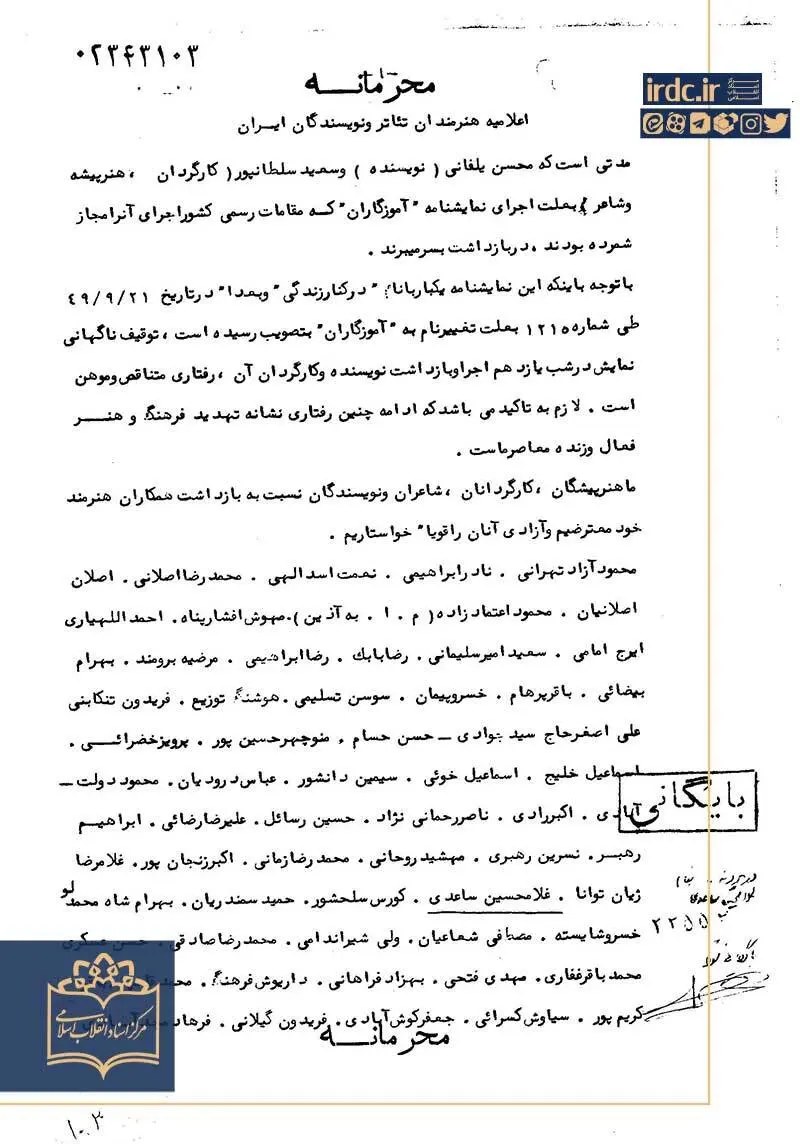 ۰۲۳۴۳۱۰۳
محرمانــه
irdc.ir
مرکز اسناد انقلاب اسلامی
اعلامیه هنرمندان تئاتر ونویسندگان ایران
مدتی است که محسن یلفانی ( نویسنده ) وسعید سلطانپور( کارگردان ، هنرپیشه
وشاعر ) بعلت اجرای نمایشنامه "آموزگاران" کــه مقامات رسمی کشوراجرای آنرامجاز
شمرده بودند ، دربازداشت بسرمیبرند .
باتوجه باینکه این نمایشنامه یکباربانام " درکنارزندگی" وبعدا" درتاریخ ٤٩/٩/٢١
طی شماره ١٢١٥ بعلت تغییرنام به "آموزگاران" بتصویب رسیده است ، توقیف ناگهانی
نمایش درشب یازدهم اجراوبازداشت نویسنده وکارگردان آن ، رفتاری متناقص وموهن
است . لازم به تاکید می باشد که ادامه چنین رفتاری نشانه تهدید فرهنگ و هنــر
فعال وزنده معاصرماست .
ماهنرپیشگان ، کارگردانان ، شاعران ونویسندگان نسبت به بازداشت همکاران هنرمند
خود معترضیم وآزادی آنان راقویا" خواستاریم .
محمودآزادتهرانی . نادرابراهیمی . نعمت اسدالهی . محمدرضااصلانی . اصلان
اصلانیان . محموداعتمادزاده( م . ا . به آذین ).مهوش افشارپناه . احمداللهیاری
ایرج امامی . سعیدامیرسلیمانی . رضابابک . رضاابراهیمی . مرضیه برومند . بهرام
بیضائی . باقرپرهام . خسروپیمان . سوسن تسلیمی . هوشنگ توزیع . فریدون تنکابنی
علی اصغرحاج سیدجوادی ــ حسن حسام . منوچهرحسین پور . پرویزخضرائــی .
اسماعیل خلیج . اسماعیل خوئی . سیمین دانشور . عباس درودیان . محمود دولت ــ
آبادی . اکبررادی . ناصررحمانی نژاد . حسین رسائل . علیرضارضائی . ابراهیــم
بایگانی
رهبــر . نسرین رهبری . مهشید روحانی . محمدرضازمانی . اکبرزنجان پور . غلامرضا
ژیان توانا . غلامحسین ساعدی . کورس سلحشور . حمید سمندریان . بهرام شاه محمدلو
خسروشایسته . مصطفی شعاعیان . ولی شیراندامی . محمدرضاصادقی . حسن عسکری
محمدباقرغفاری . مهدی فتحی . بهزادفراهانی . داریوش فرهنگ .
کریم پور . سیاوش کسرائی . جعفرکوش آبادی . فریدون گیلانی .
محرمانــه
مرکز اسناد انقلاب اسلامی
۱۰۳